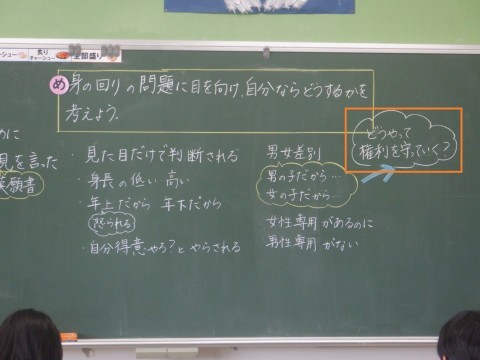 炙り
チャーシュー
全部盛り
め 身の回りの問題に目を向け、自分ならどうするかを
考えよう。
めに
見を言った
嘆願書
・見た目だけで判断される
・身長の低い 高い
・年上だから 年下だから
怒られる
・自分得意やろ？とやらされる
男女差別
男の子だから…
女の子だから…
女性専用があるのに
男性専用がない
どうやって
権利を守っていく？